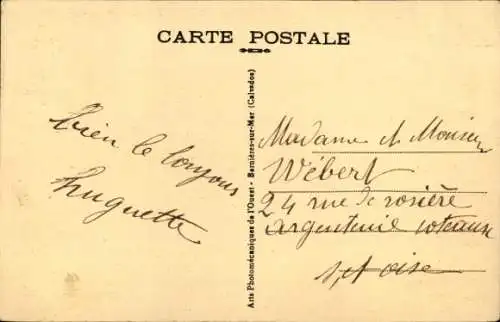 CARTE POSTALE
bien le bonjour
huguette
Arts Photomécaniques de l'Ouest - Bernières-sur-Mer (Calvados)
Madame et Monsieur
Wébert
24 rue de rosière
argenteuil coteaux
S. et oise